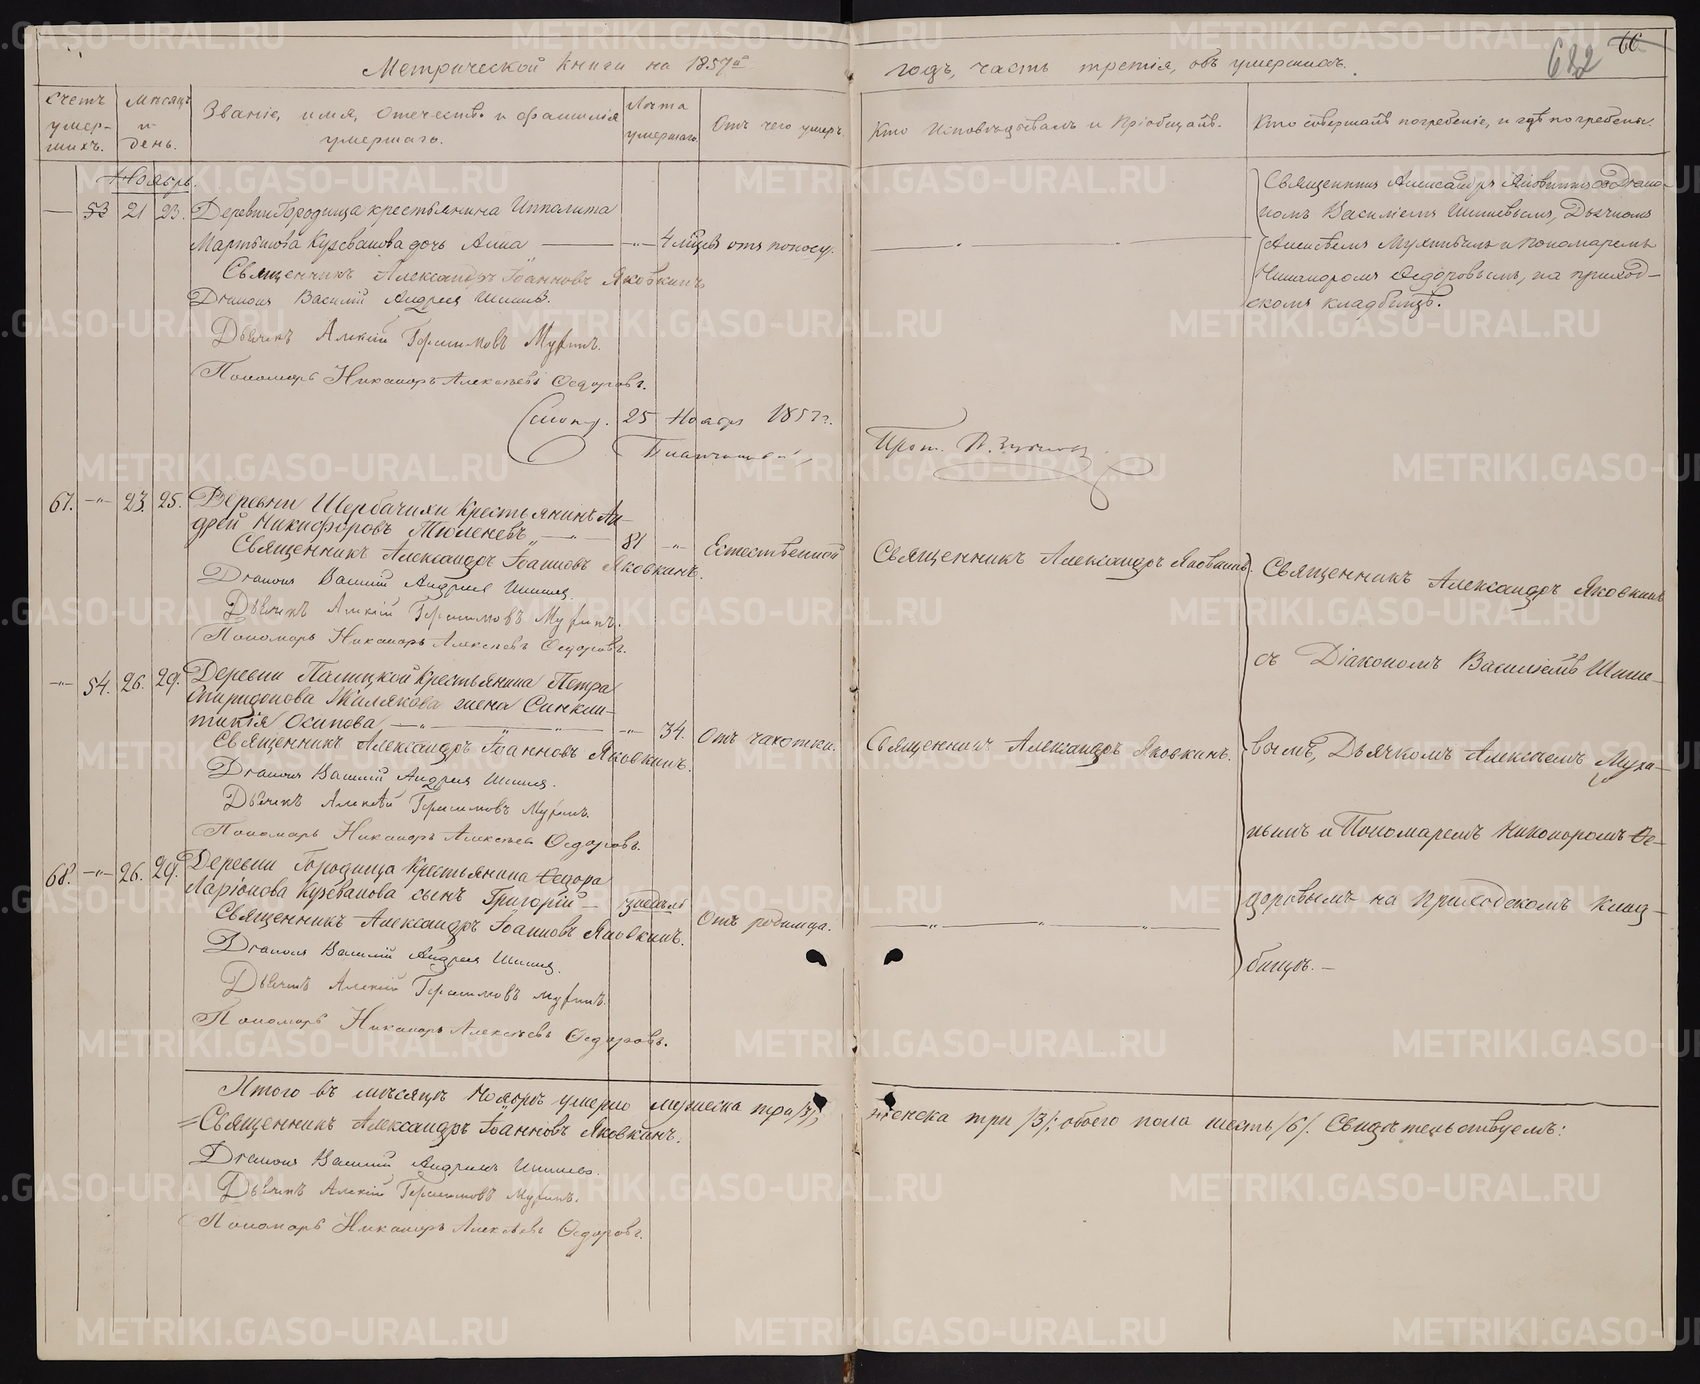 Метрической книги на 1857й
годъ, часть третія, объ умершихъ.
682 66
Счетъ умер- шихъ.
Мѣсяцъ и день.
Званіе, имя, отечество и фамилія умершаго.
Лѣта умершаго.
Отъ чего умеръ.
Кто исповѣдывалъ и пріобщалъ.
Кто совершалъ погребеніе, и гдѣ погребены.
Ноябрь.
— 53 21 23. Деревни Городища крестьянина Ипполита
Мартынова Кужеванова дочь Анна —"— 4 мѣсц. отъ поносу.
Священникъ Александръ Іоанновъ Яковкинъ
Діаконъ Василій Андреевъ Шишевъ.
Дьячекъ Алексій Герасимовъ Мухинъ.
Пономарь Никаноръ Алексѣевъ Ѳедоровъ.
Священникъ Александръ Яковкинъ съ Діако-
номъ Василіемъ Шишевымъ, Дьячкомъ
Алексѣемъ Мухинымъ и пономаремъ
Никаноромъ Ѳедоровымъ, на приход-
скомъ кладбищѣ.
25 Ноября 1857 г.
Прот.
67. —"— 23. 25. Деревни Щербачихи Крестьянинъ Ан-
дрей Никифоровъ Тюленевъ —"— 81 —"— Естественной
Священникъ Александръ Іоанновъ Яковкинъ.
Діаконъ Василій Андреевъ Шишевъ.
Дьячекъ Алексій Герасимовъ Мухинъ.
Пономарь Никаноръ Алексѣевъ Ѳедоровъ.
Священникъ Александръ Яковкинъ.
—"— 54. 26. 29. Деревни Палицкой Крестьянина Петра
Спиридонова жена Синкли-
тикія Осипова —"— 34. Отъ чахотки.
Священникъ Александръ Іоанновъ Яковкинъ.
Діаконъ Василій Андреевъ Шишевъ.
Дьячекъ Алексѣй Герасимовъ Мухинъ.
Пономарь Никаноръ Алексѣевъ Ѳедоровъ.
Священникъ Александръ Яковкинъ.
68. —"— 26. 29. Деревни Городища Крестьянина Ѳедора
Ларіонова Кужеванова сынъ Григорій — Отъ родимца.
Священникъ Александръ Іоанновъ Яковкинъ.
Діаконъ Василій Андреевъ Шишевъ.
Дьячекъ Алексій Герасимовъ Мухинъ.
Пономарь Никаноръ Алексѣевъ Ѳедоровъ.
Священникъ Александръ Яковкинъ
съ Діакономъ Василіемъ Шише-
вымъ, Дьячкомъ Алексѣемъ Муха-
нымъ и Пономаремъ Никоноромъ Ѳе-
доровымъ на приходскомъ клад-
бищѣ. —
Итого въ мѣсяцѣ Ноябрѣ умерло мужеска три /3/, женска три /3/; обоего пола шесть /6/. Свидѣтельствуемъ:
Священникъ Александръ Іоанновъ Яковкинъ.
Діаконъ Василій Андреевъ Шишевъ.
Дьячекъ Алексій Герасимовъ Мухинъ.
Пономарь Никаноръ Алексѣевъ Ѳедоровъ.
METRIKI.GASO-URAL.RU